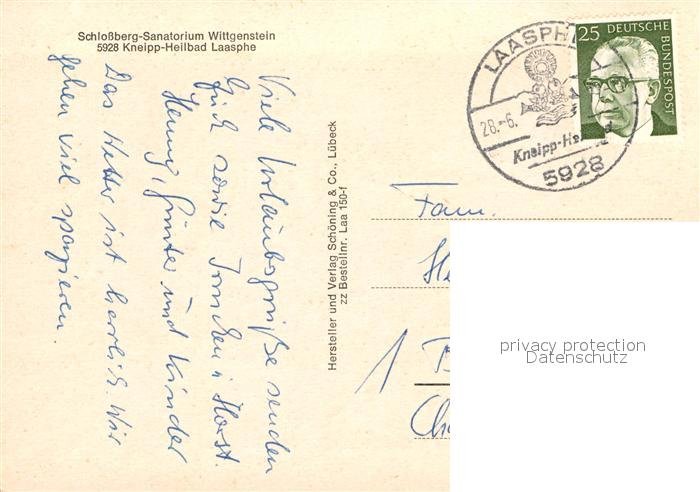 Schloßberg-Sanatorium Wittgenstein
5928 Kneipp-Heilbad Laasphe
Viele Urlaubsgrüße senden
Euch sowie
Henny, Günter und Kinder
Das Wetter ist herrlich. Wir
gehen viel spazieren.
Hersteller und Verlag Schöning & Co., Lübeck
zz Bestellnr. Laa 150-f
LAASPHE
28.-6.
Kneipp-
5928
25 DEUTSCHE
BUNDESPOST
Fam.
1
privacy protection
Datenschutz